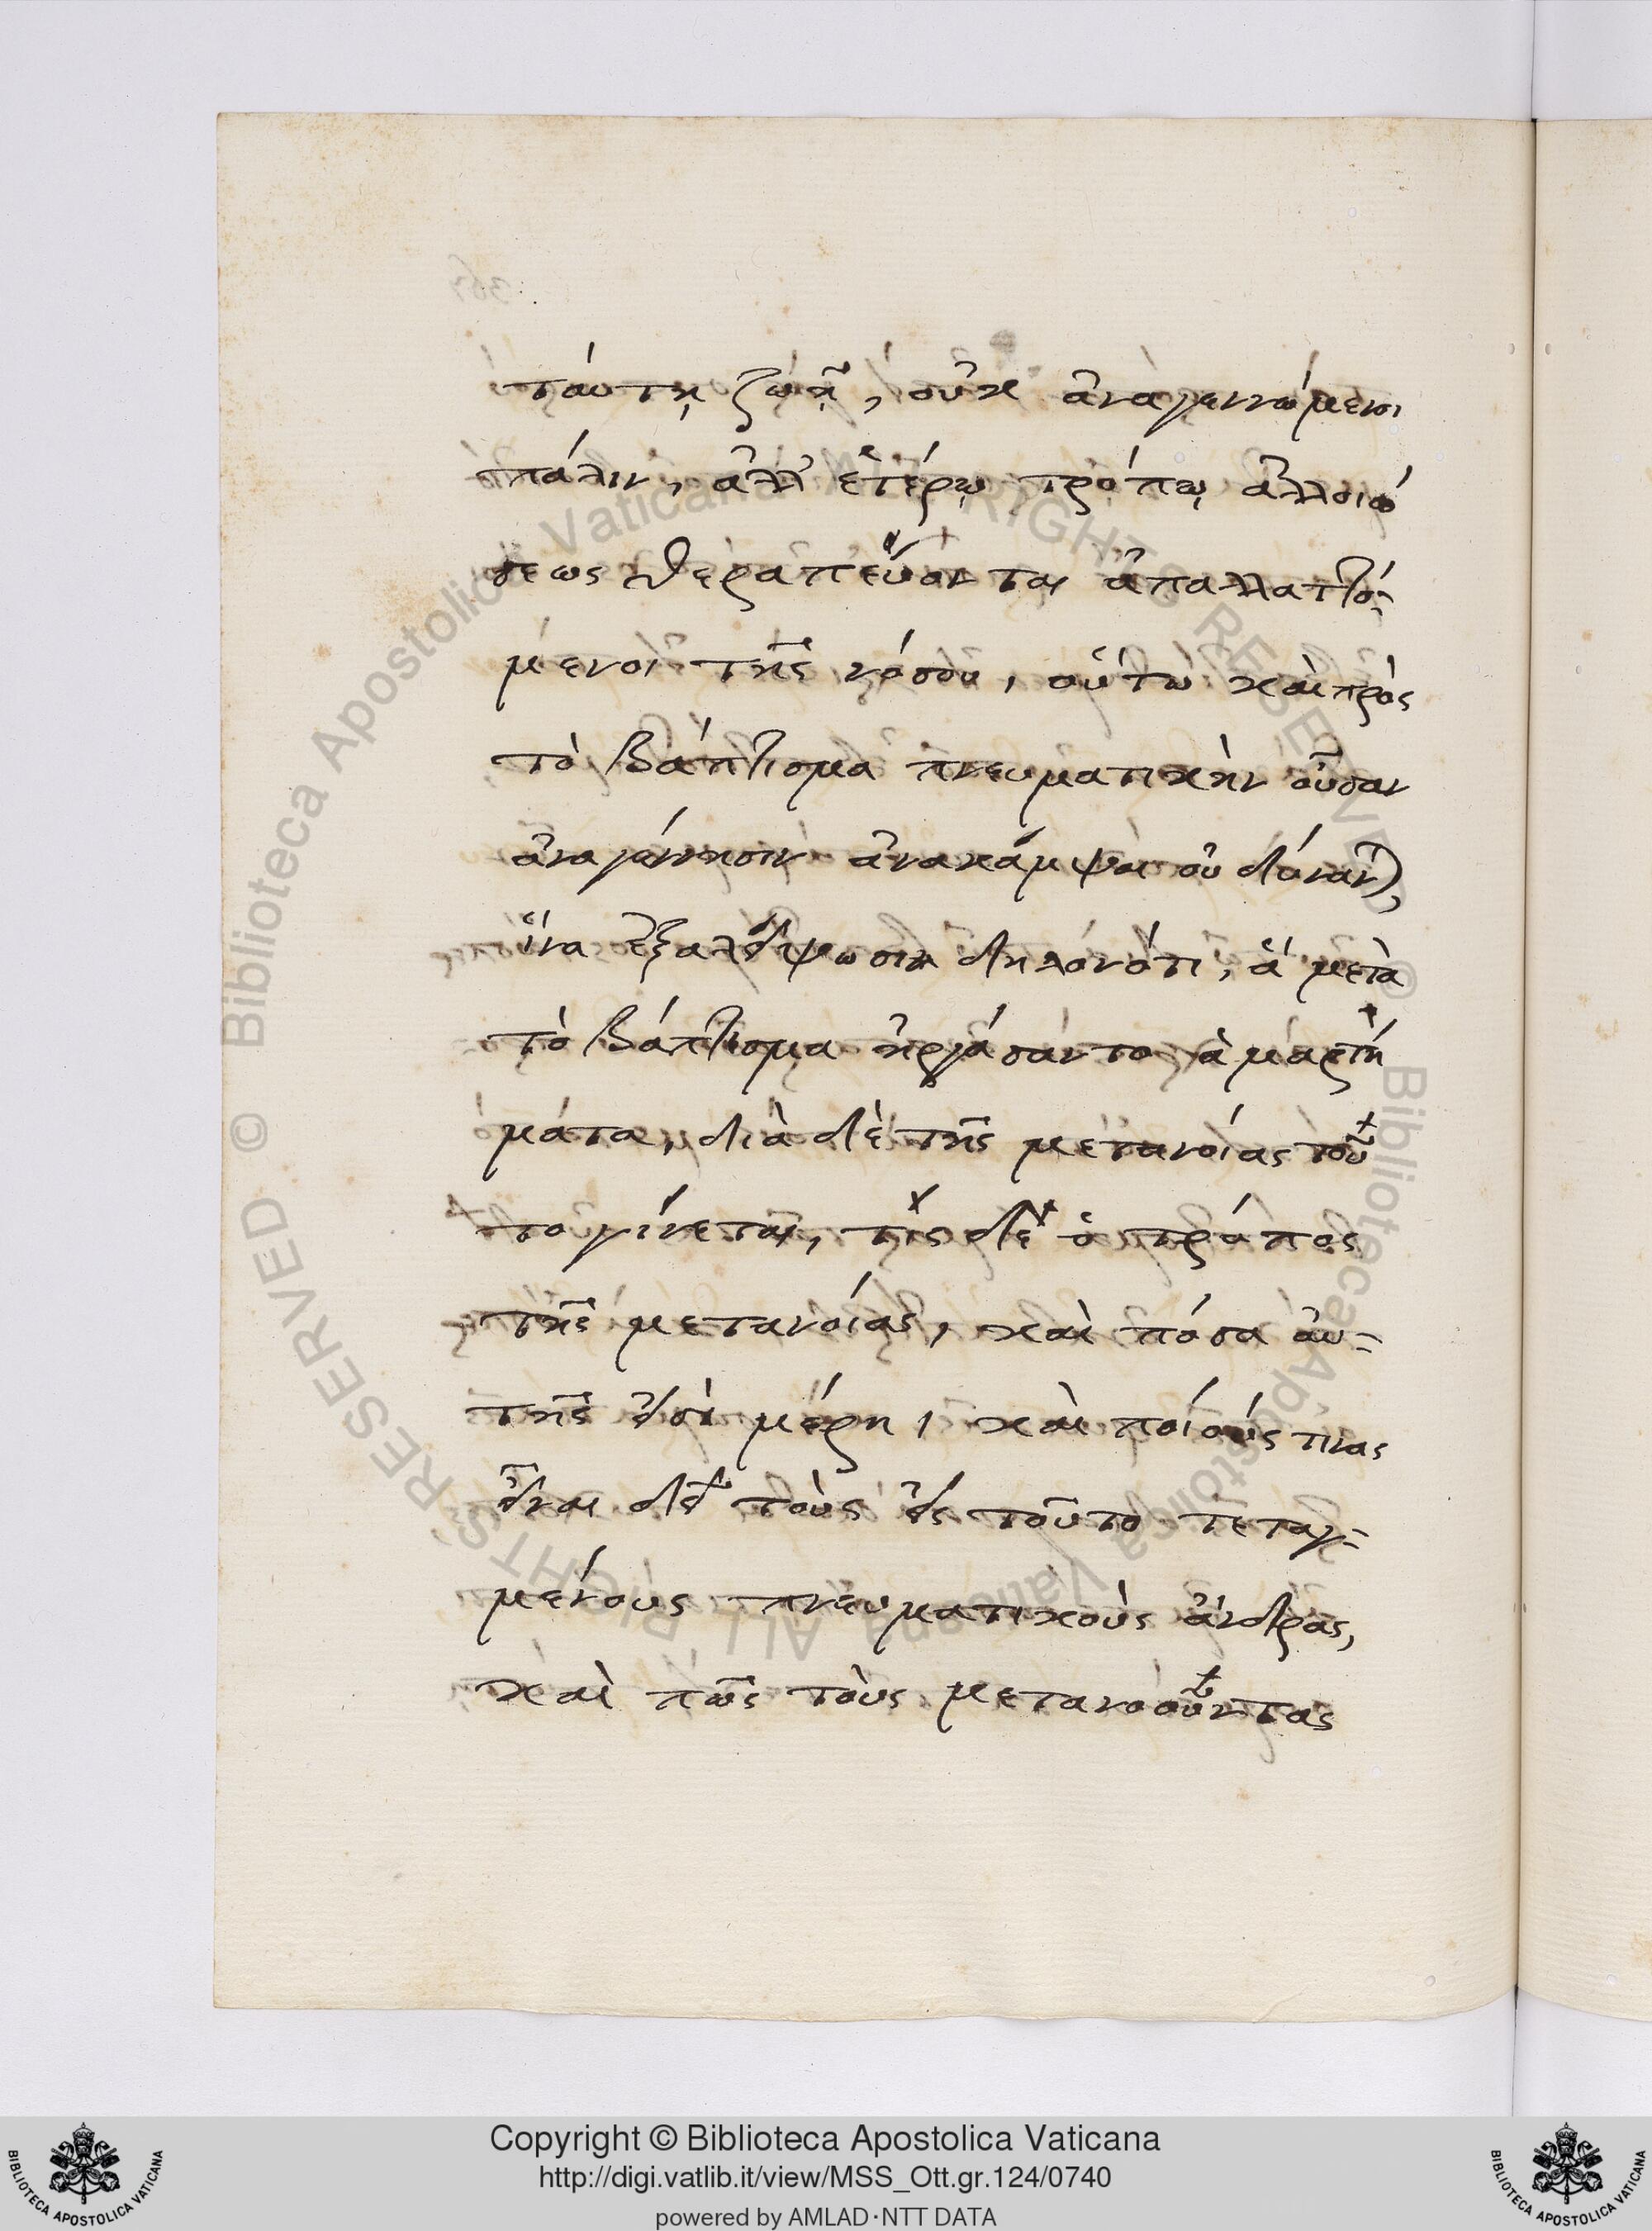 ταύτῃ ζωῇ, οὐκ ἀναγεννώμενοι
πάλιν, ἀλλ' ἑτέρῳ τρόπῳ ἀλλοιώ
σεως θεραπεύονται ἀπαλλαττό-
μενοι τῆς νόσου, οὕτω καὶ πρὸς
τὸ βάπτισμα πνευματικὴν οὖσαν
ἀναγέννησιν ἀνακάμψαι οὐ δύναν),
ἵνα ἐξαλείψωσιν δηλονότι, ἃ μετὰ
τὸ βάπτισμα ἠργάσαντο ἁμαρτή
ματα, διὰ δὲ τῆς μετανοίας τοῦ
το γίνεται, τίς δὲ ὁ τρόπος
τῆς μετανοίας, καὶ πόσα αὐ-
τῆς εἰσὶ μέρη, καὶ ποίους τινας
εἶναι δεῖ τοὺς εἰς τοῦτο τεταγ-
μένους πνευματικοὺς ἄνδρας,
καὶ πῶς τοὺς μετανοοῦντας
Copyright © Biblioteca Apostolica Vaticana
http://digi.vatlib.it/view/MSS_Ott.gr.124/0740
powered by AMLAD·NTT DATA
BIBLIOTECA APOSTOLICA VATICANA
BIBLIOTECA APOSTOLICA VATICANA
© Biblioteca Apostolica Vaticana ALL RIGHTS RESERVED
© Biblioteca Apostolica Vaticana ALL RIGHTS RESERVED